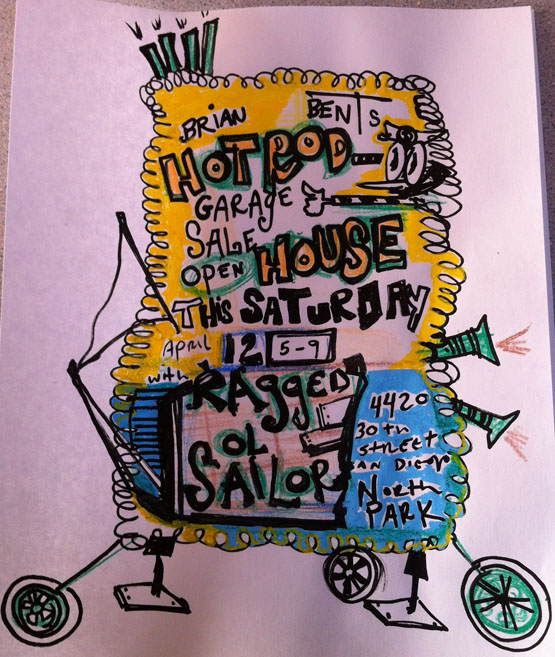 BRIAN BENTS
HOT ROD
GARAGE
SALE
OPEN HOUSE
THIS SATURDAY
APRIL 12 5-9
with RAGGED
OL
SAILOR
4420
30th
STREET
SAN DIEGO
NORTH
PARK